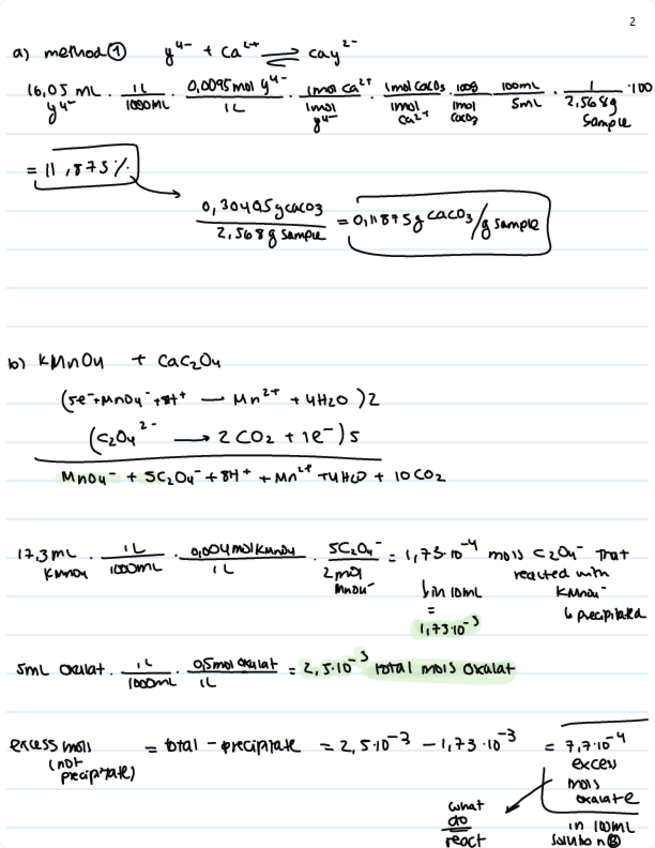 2
a) method ① y⁴⁻ + Ca²⁺ ⇌ Cay²⁻
16,05 mL y⁴⁻ · 1L/1000mL · 0,0095 mol y⁴⁻/1L · 1mol Ca²⁺/1mol y⁴⁻ · 1mol CaCO₃/1mol Ca²⁺ · 100g/1mol CaCO₃ · 100mL/5mL · 1/2,568g sample · 100
= 11,875%
0,30495g CaCO3/2,568g sample = 0,11875g CaCO3/g sample
b) KMnO4 + CaC₂O4
(5e⁻+MnO4⁻+8H⁺ → Mn²⁺ + 4H₂O)2
(C₂O4²⁻ → 2CO₂ + 1e⁻)5
MnO4⁻ + 5C₂O4⁻ + 8H⁺ + Mn²⁺ + 4H₂O + 10CO2
17,3mL KMnO4 · 1L/1000mL · 0,004molKMnO4/1L · 5C₂O4⁻/2mol MnO4⁻ = 1,73·10⁻⁴ mols C2O4⁻ that
reacted with
KMnO4⁻
↳ precipitated
↳ in 10mL
=
1,73·10⁻³
5mL oxulat · 1L/1000mL · 0,5mol oxulat/1L = 2,5·10⁻³ total mols oxulat
excess mols = total - precipitate = 2,5·10⁻³ - 1,73·10⁻³ = 7,7·10⁻⁴
(not precipitate)
excess
mols
oxalate
in 100mL
solution Ⓑ
what
do
react